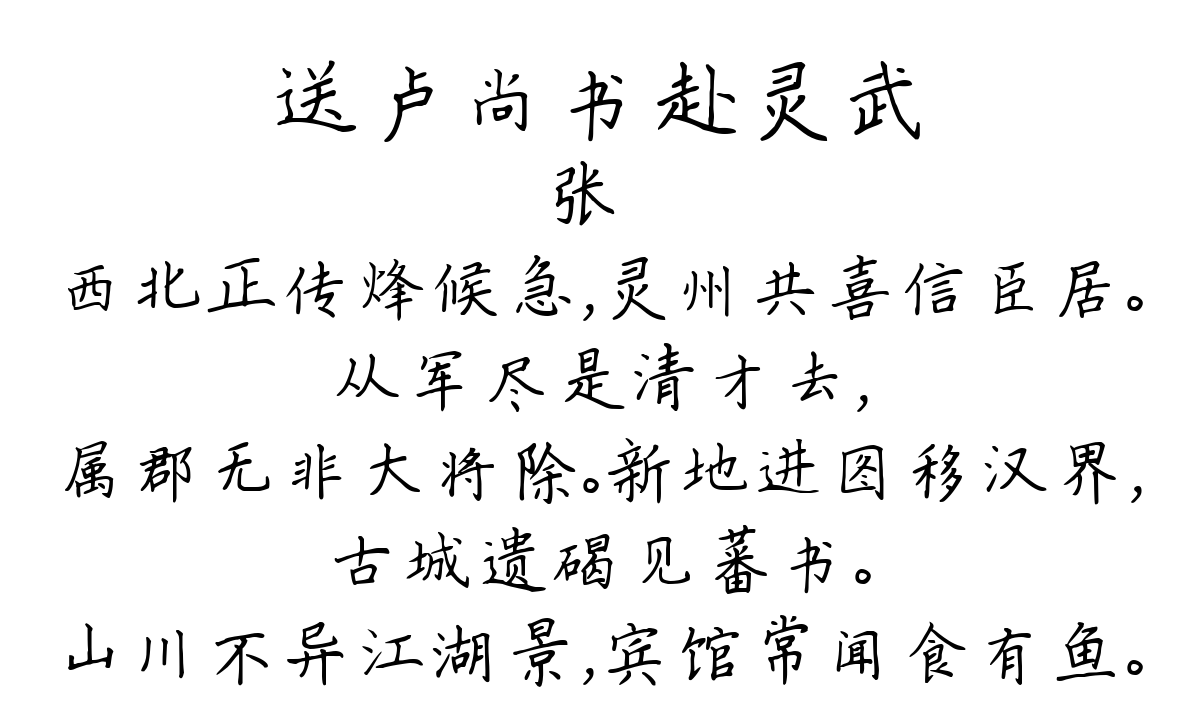 送卢尚书赴灵武
张
西北正传烽候急,灵州共喜信臣居。
从军尽是清才去,
属郡无非大将除。新地进图移汉界,
古城遗碣见蕃书。
山川不异江湖景,宾馆常闻食有鱼。